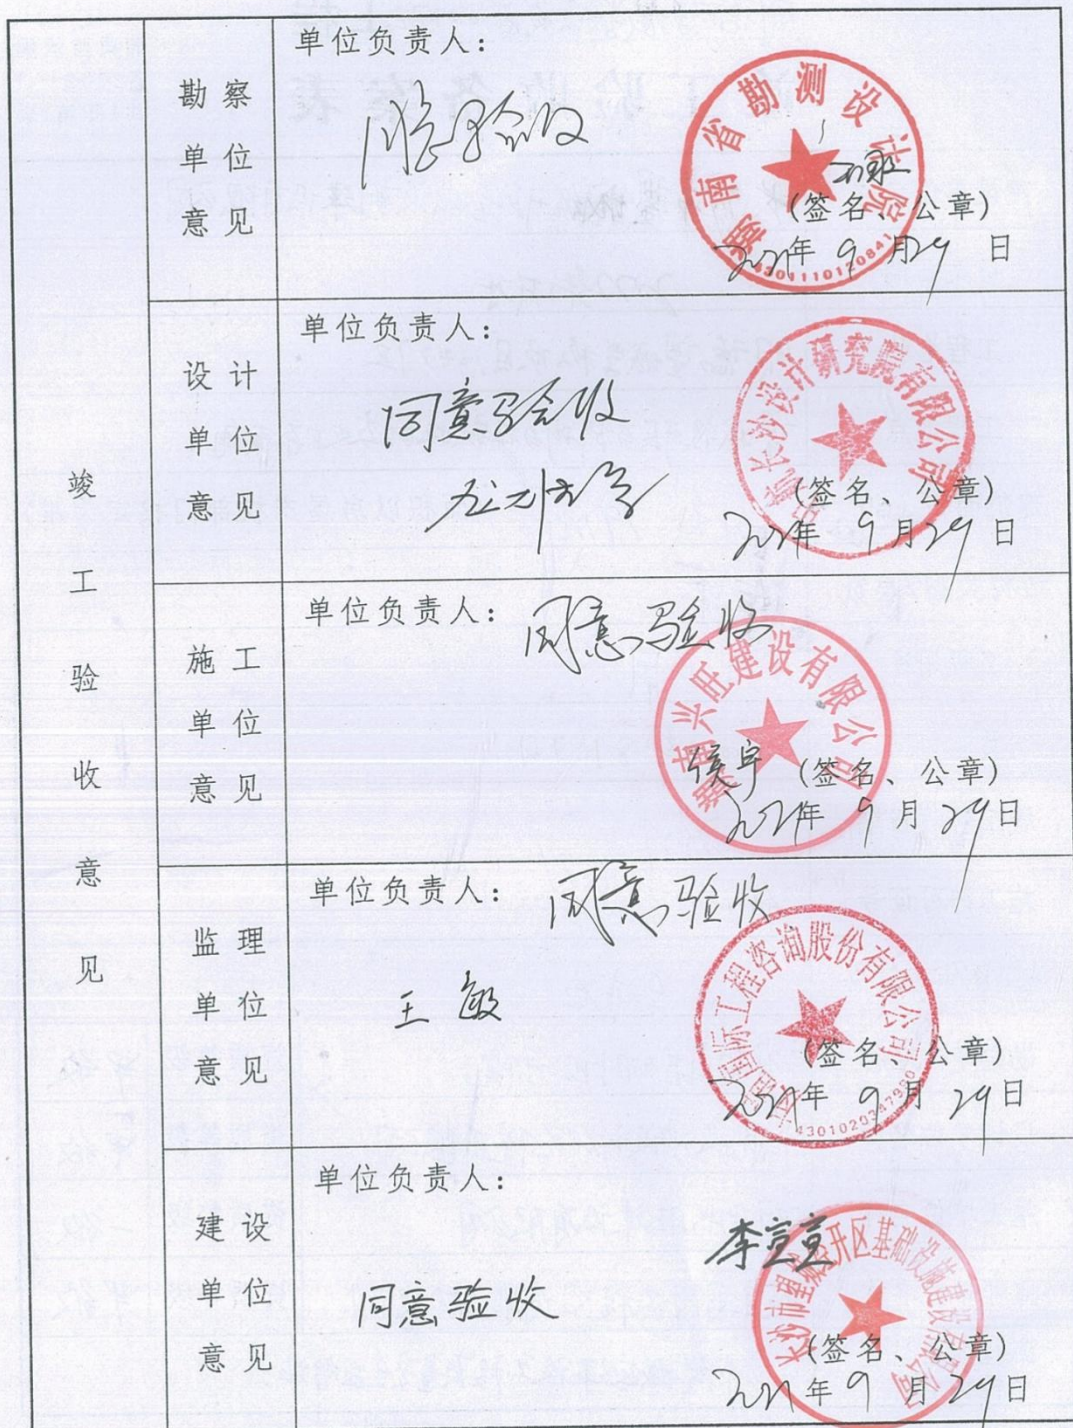 竣工验收意见
勘察单位意见
单位负责人：
同意验收
湖南省勘测设计院
43011110120841
(签名、公章)
2021年 9 月 29 日
设计单位意见
单位负责人：
同意验收
长沙设计研究院有限公司
(签名、公章)
2021年 9 月 29 日
施工单位意见
单位负责人：
同意验收
湖南兴旺建设有限公司
侯宇 (签名、公章)
2021年 9 月 29 日
监理单位意见
单位负责人：
同意验收
王敏
国际工程咨询股份有限公司
(签名、公章)
2021年 9 月 29 日
建设单位意见
单位负责人：
李宣宣
同意验收
长沙市望城经开区基础设施建设有限公司
(签名、公章)
2021年 9 月 29 日